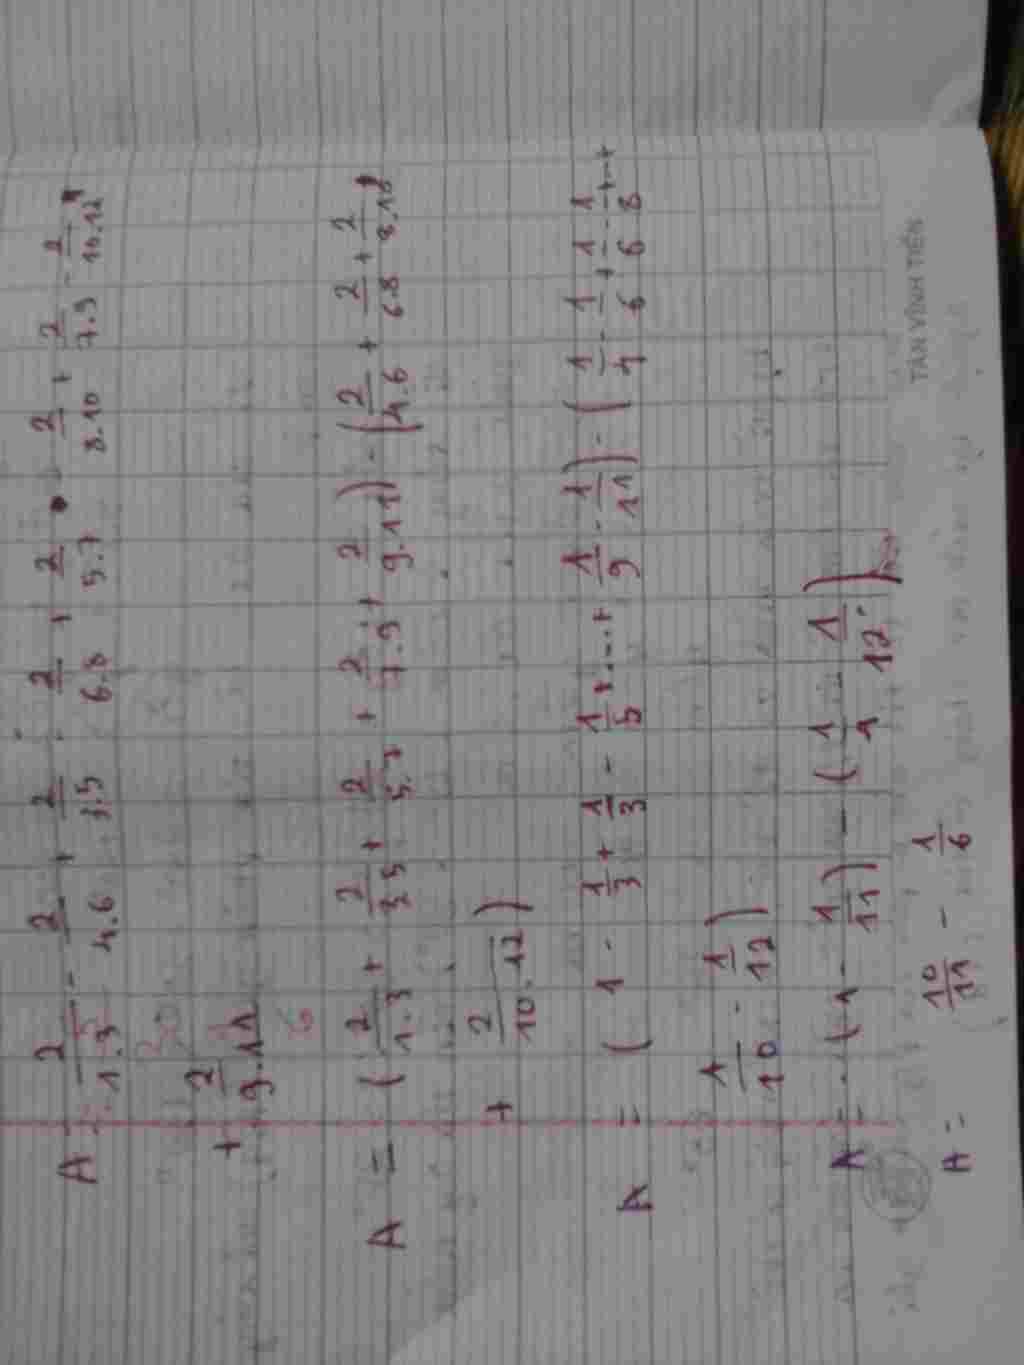 A = 2/1.3 - 2/4.6 + 2/3.5 - 2/6.8 + 2/5.7 - 2/8.10 + 2/7.9 - 2/10.12
+ 2/9.11
A = (2/1.3 + 2/3.5 + 2/5.7 + 2/7.9 + 2/9.11) - (2/4.6 + 2/6.8 + 2/8.10
+ 2/10.12)
A = (1 - 1/3 + 1/3 - 1/5 + ... + 1/9 - 1/11) - (1/4 - 1/6 + 1/6 - 1/8 + ... +
1/10 - 1/12)
A = (1 - 1/11) - (1/4 - 1/12)
A = 10/11 - 1/6
TÂN VĨNH TIẾN